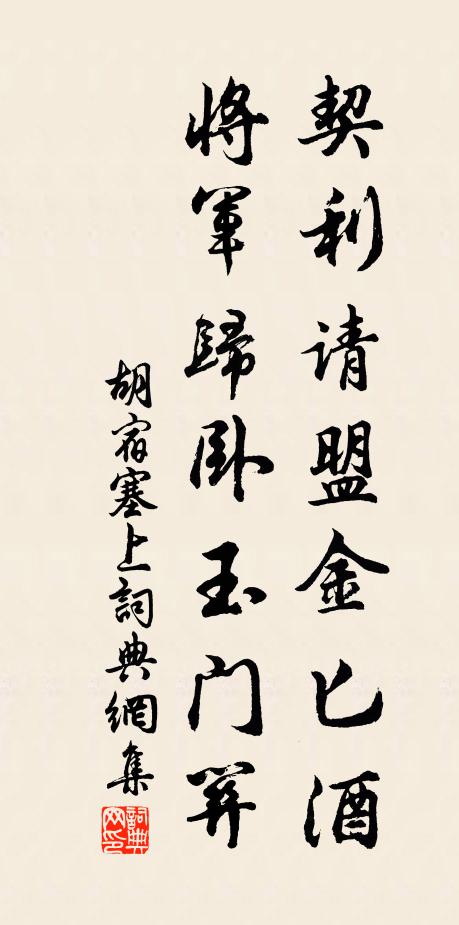 契利请盟金匕酒
将軍歸卧玉门關
胡宿塞上詞典網集
詞典网印